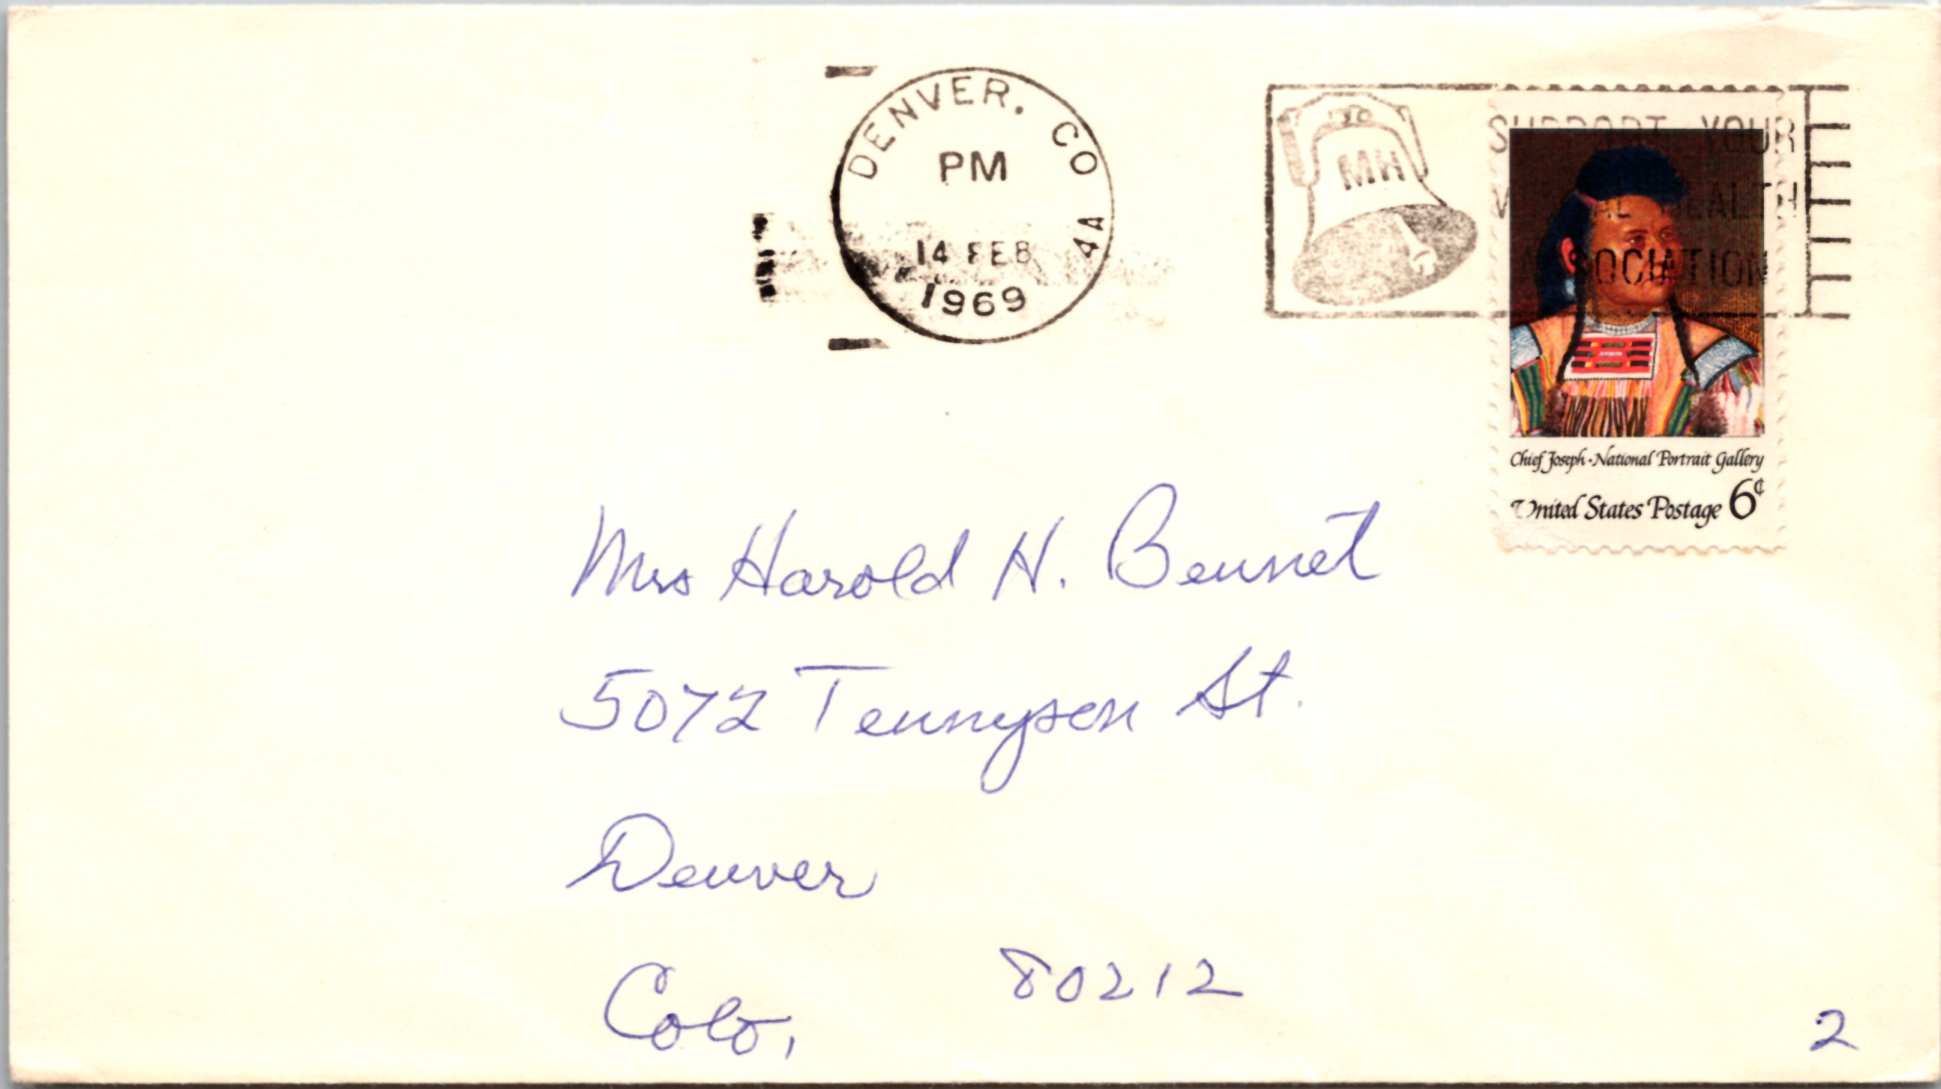 DENVER, CO
PM
14 FEB
1969
4A
MH
SUPPORT YOUR
MENTAL HEALTH
ASSOCIATION
Chief Joseph · National Portrait Gallery
United States Postage 6¢
Mrs Harold H. Bennet
5072 Tennyson St.
Denver
Colo, 80212
2